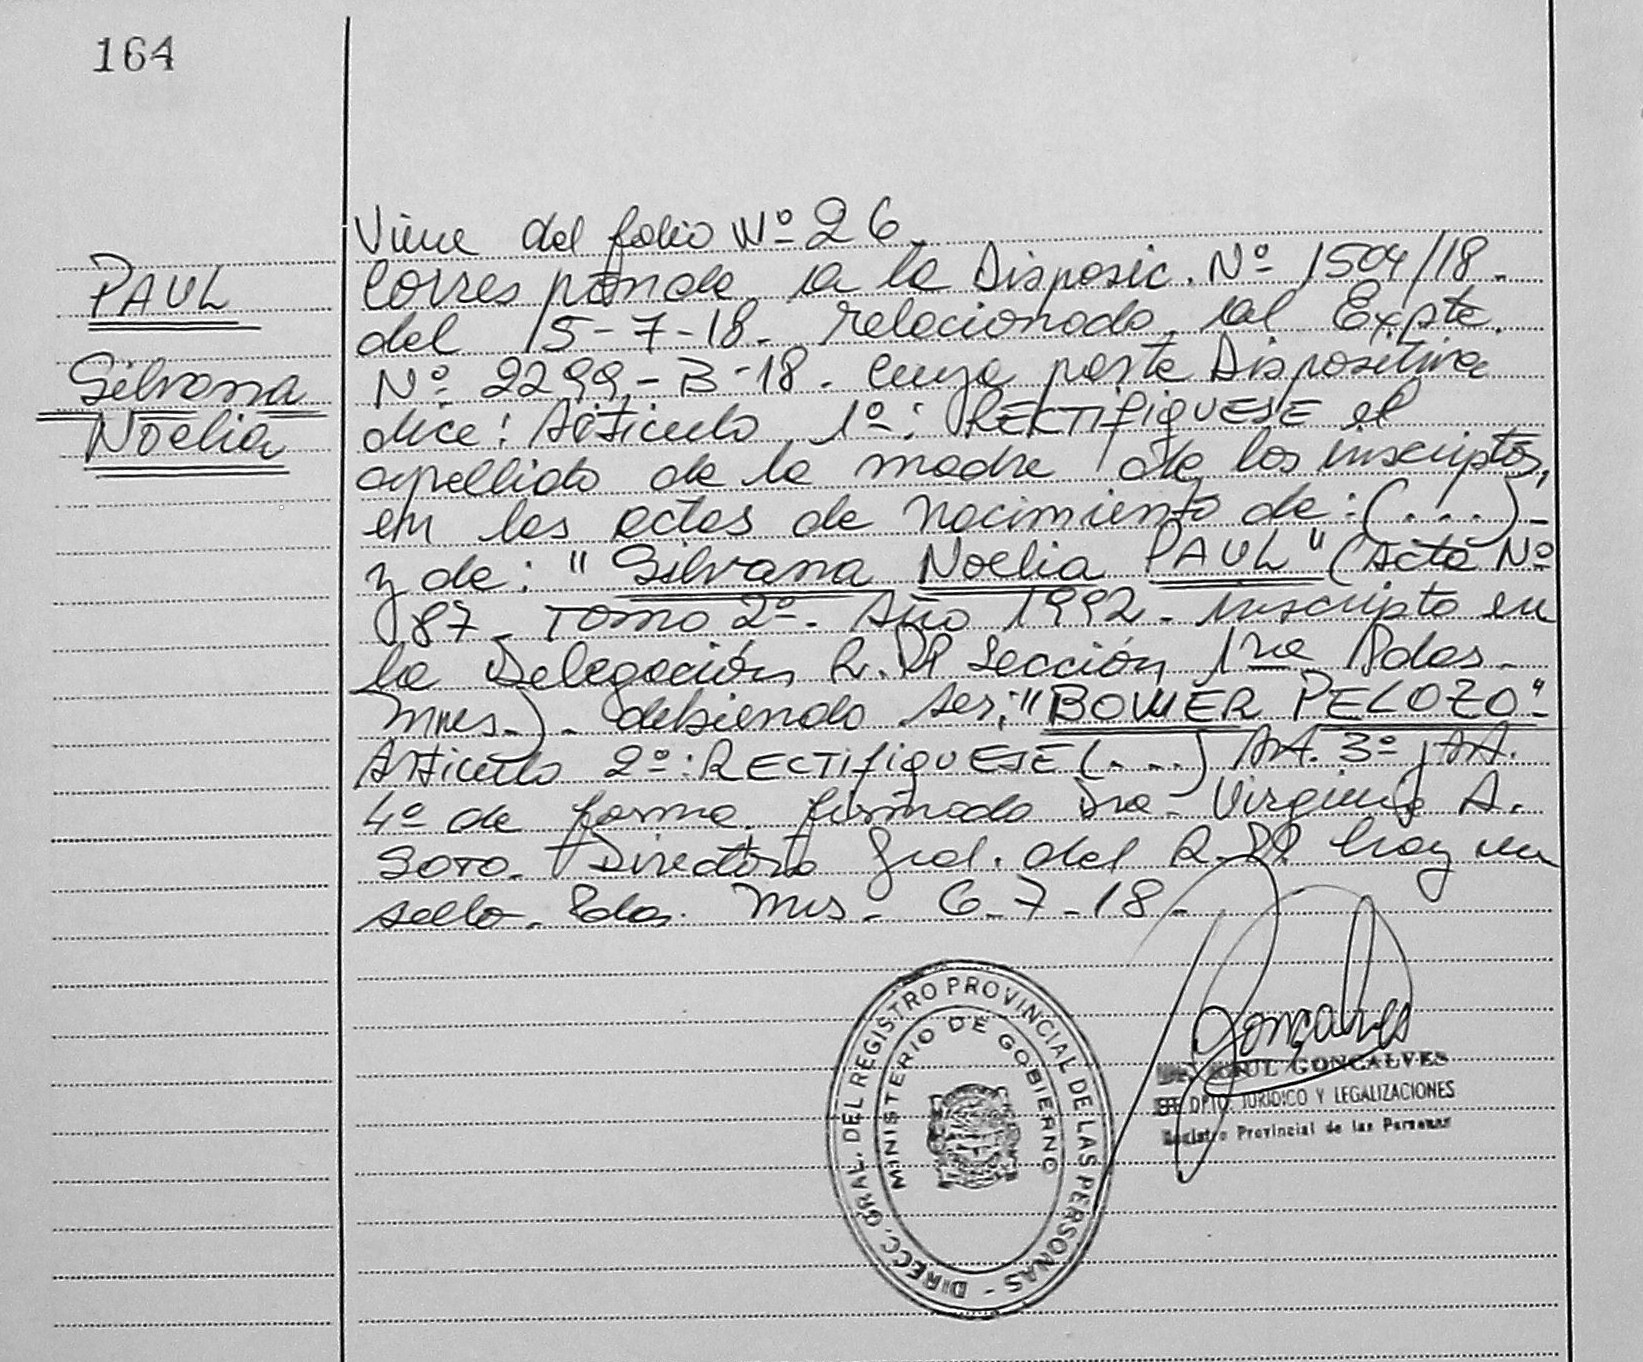 164
PAUL
Silvana
Noelia
Viene del folio Nº 26.
Corresponde a la Disposic. Nº 1504/18.
del 15-7-18. relacionado al Expte.
Nº 2299-B-18. cuya parte Dispositiva
dice: Artículo 1º: RECTIFIQUESE el
apellido de la madre de los inscriptos,
en las actas de nacimiento de: (...)-
y de: "Silvana Noelia PAUL" (Acta Nº
87. Tomo 2º. Año 1992. inscripta en
la Delegación R.P. Sección 1ra Pdas-
Mnes.). debiendo ser: "BOWIER PELOZO"
Artículo 2º: RECTIFIQUESE (...) Art. 3º y Art.
4º de forma. firmado Dra. Virginia A.
SOTO. Directora Gral. del R.P. hay un
sello. Pdas. Mns. 6-7-18-
DIRECC. GRAL. DEL REGISTRO PROVINCIAL DE LAS PERSONAS -
MINISTERIO DE GOBIERNO
Gonçalves
RAUL GONCALVES
DPTO. JURIDICO Y LEGALIZACIONES
Registro Provincial de las Personas